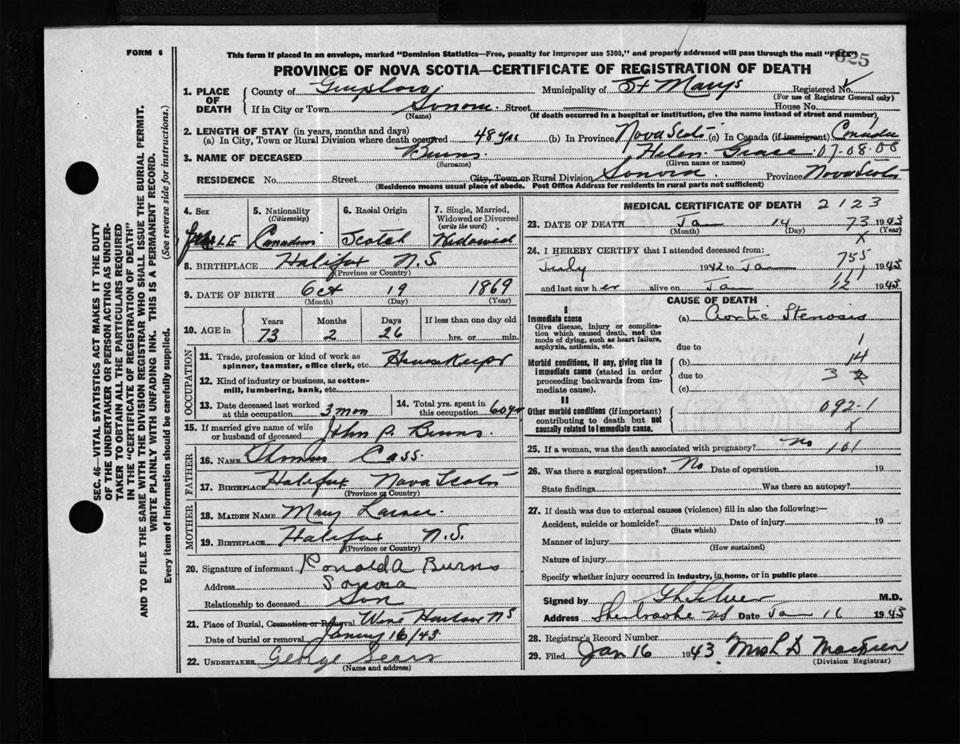 FORM 6
This form if placed in an envelope, marked "Dominion Statistics—Free, penalty for improper use $300," and properly addressed will pass through the mail "FREE"
625
PROVINCE OF NOVA SCOTIA—CERTIFICATE OF REGISTRATION OF DEATH
SEC. 46—VITAL STATISTICS ACT MAKES IT THE DUTY
OF THE UNDERTAKER OR PERSON ACTING AS UNDER-
TAKER TO OBTAIN ALL THE PARTICULARS REQUIRED
IN THE "CERTIFICATE OF REGISTRATION OF DEATH"
AND TO FILE THE SAME WITH THE DIVISION REGISTRAR WHO SHALL ISSUE THE BURIAL PERMIT.
WRITE PLAINLY WITH UNFADING INK. THIS IS A PERMANENT RECORD.
Every item of information should be carefully supplied. (See reverse side for instructions.)
1. PLACE OF DEATH County of Municipality of St Marys Registered No.
(For use of Registrar General only)
If in City or Town Sonora Street House No.
(Name) (If death occurred in a hospital or institution, give the name instead of street and number)
2. LENGTH OF STAY (in years, months and days)
(a) In City, Town or Rural Division where death occured 48 yrs (b) In Province Nova Scotia (c) In Canada (if immigrant) Canada
3. NAME OF DECEASED Burns Helen Grace 07-08-08
(Surname) (Given name or names)
RESIDENCE No. Street City, Town or Rural Division Sonora Province Nova Scotia
(Residence means usual place of abode. Post Office Address for residents in rural parts not sufficient)
4. Sex 5. Nationality (Citizenship) 6. Racial Origin 7. Single, Married, Widowed or Divorced (write the word)
Canadian Scotch Widowed
8. BIRTHPLACE Halifax N.S.
(Province or Country)
9. DATE OF BIRTH Oct 19 1869
(Month) (Day) (Year)
10. AGE in Years Months Days If less than one day old
73 2 26 hrs. or min.
OCCUPATION
11. Trade, profession or kind of work as spinner, teamster, office clerk, etc. HouseKeeper
12. Kind of industry or business, as cotton-mill, lumbering, bank, etc.
13. Date deceased last worked at this occupation 3 mon 14. Total yrs. spent in this occupation 60 yr
15. If married give name of wife or husband of deceased John P. Burns.
FATHER
16. NAME Thomas Cass.
17. BIRTHPLACE Halifax Nova Scotia
(Province or Country)
MOTHER
18. MAIDEN NAME Mary
19. BIRTHPLACE Halifax N.S.
(Province or Country)
20. Signature of informant Ronald A Burns
Address Sonora
Relationship to deceased Son
21. Place of Burial, Cremation or Removal Wine Harbour NS
Date of burial or removal 16/43
22. UNDERTAKER George Sears
(Name and address)
MEDICAL CERTIFICATE OF DEATH 2123
23. DATE OF DEATH Ja 14 73 1943
(Month) (Day) (Year)
24. I HEREBY CERTIFY that I attended deceased from: X
July 1942 to Jan 755 1943
and last saw her alive on Jan 1943
CAUSE OF DEATH
I
Immediate cause (a) Aortic Stenosis
Give disease, injury or complication which caused death, not the mode of dying, such as heart failure, asphyxia, asthenia, etc.
due to 1
Morbid conditions, if any, giving rise to immediate cause (stated in order proceeding backwards from immediate cause). (b) 14
due to 3
(c)
II
Other morbid conditions (if important) contributing to death but not causally related to immediate cause. 092-1
X
25. If a woman, was the death associated with pregnancy? No 101
26. Was there a surgical operation? No Date of operation 19
State findings Was there an autopsy?
27. If death was due to external causes (violence) fill in also the following:—
Accident, suicide or homicide? Date of injury 19
(State which)
Manner of injury
(How sustained)
Nature of injury
Specify whether injury occurred in industry, in home, or in public place
Signed by M.D.
Address Sherbrooke NS Date Jan 16 1943
28. Registrar's Record Number
29. Filed Jan 16 1943 Mrs L D
(Division Registrar)